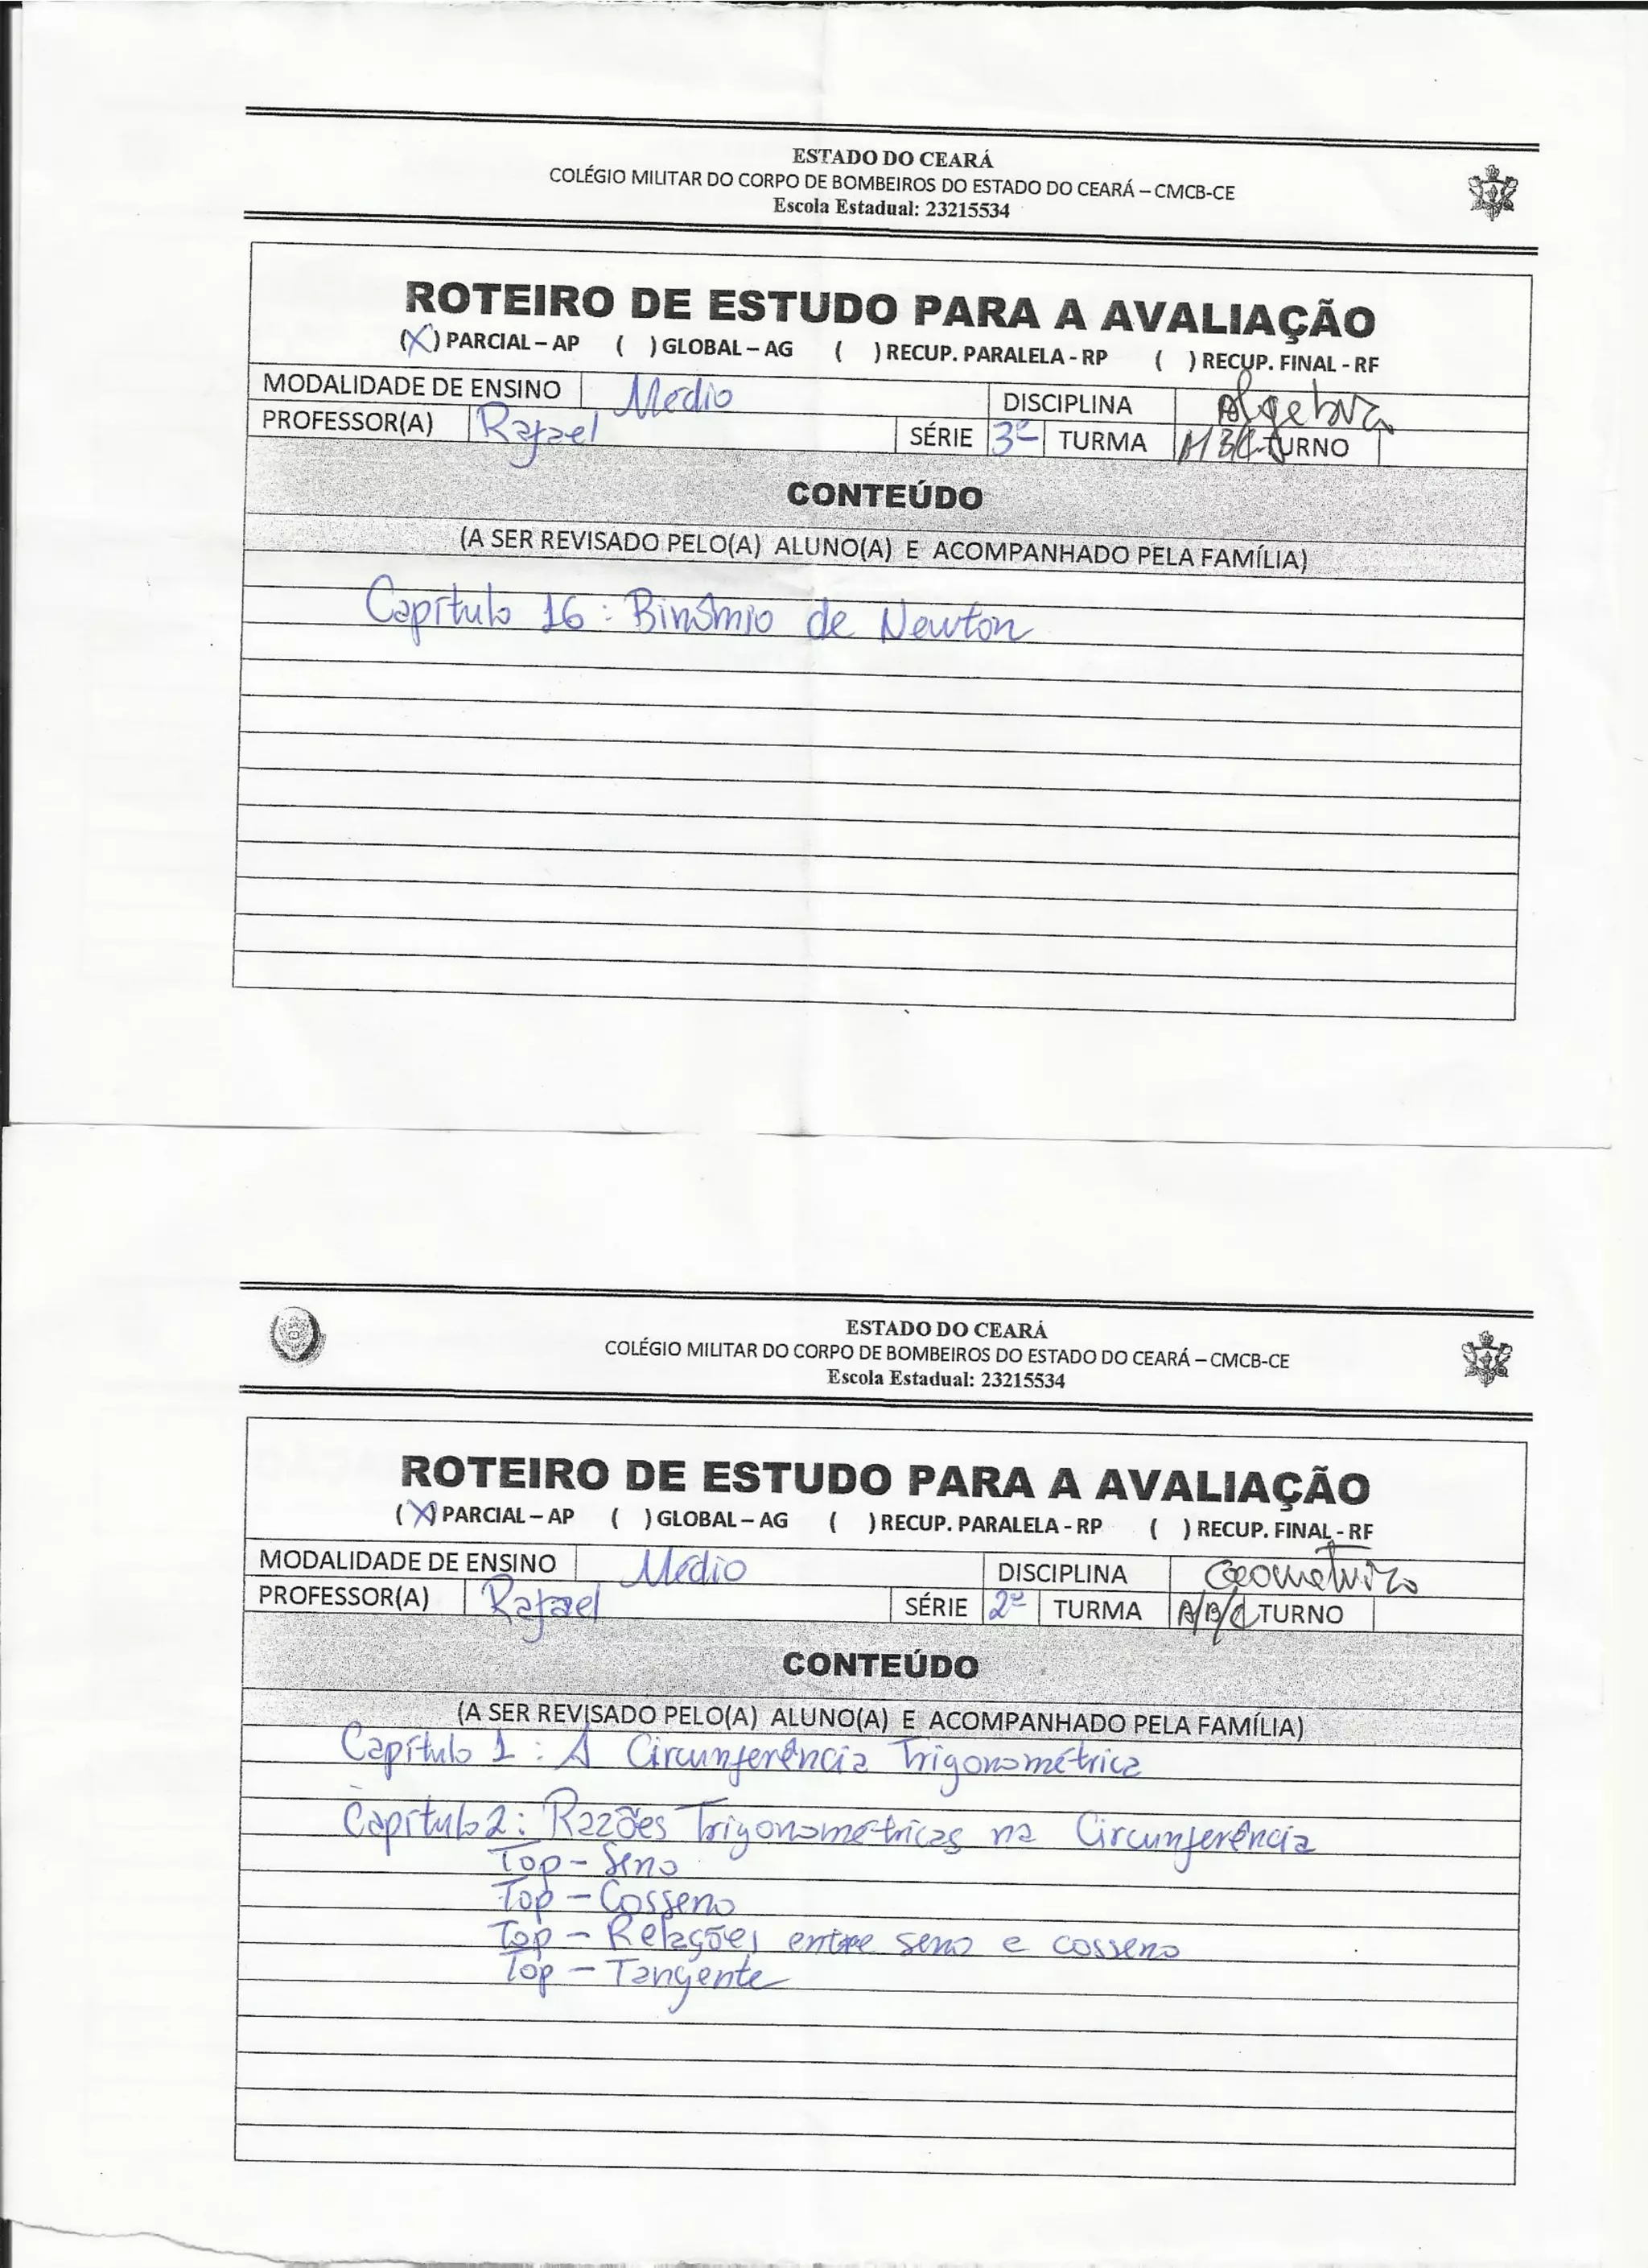 ESTADO DO CEARÁ
COLÉGIO MILITAR DO CORPO DE BOMBEIROS DO ESTADO DO CEARÁ – CMCB-CE
Escola Estadual: 23215534
ROTEIRO DE ESTUDO PARA A AVALIAÇÃO
(X) PARCIAL – AP ( ) GLOBAL – AG ( ) RECUP. PARALELA - RP ( ) RECUP. FINAL - RF
MODALIDADE DE ENSINO Médio DISCIPLINA Algebra
PROFESSOR(A) Rafael SÉRIE 3ª TURMA A/B/C TURNO
CONTEÚDO
(A SER REVISADO PELO(A) ALUNO(A) E ACOMPANHADO PELA FAMÍLIA)
Capítulo 16: Binômio de Newton
ESTADO DO CEARÁ
COLÉGIO MILITAR DO CORPO DE BOMBEIROS DO ESTADO DO CEARÁ – CMCB-CE
Escola Estadual: 23215534
ROTEIRO DE ESTUDO PARA A AVALIAÇÃO
(X) PARCIAL – AP ( ) GLOBAL – AG ( ) RECUP. PARALELA - RP ( ) RECUP. FINAL - RF
MODALIDADE DE ENSINO Médio DISCIPLINA Geometria
PROFESSOR(A) Rafael SÉRIE 2ª TURMA A/B/C TURNO
CONTEÚDO
(A SER REVISADO PELO(A) ALUNO(A) E ACOMPANHADO PELA FAMÍLIA)
Capítulo 1: A Circunferência Trigonométrica
Capítulo 2: Razões Trigonométricas na Circunferência
Top – Seno
Top – Cosseno
Top – Relações entre seno e cosseno
Top – Tangente